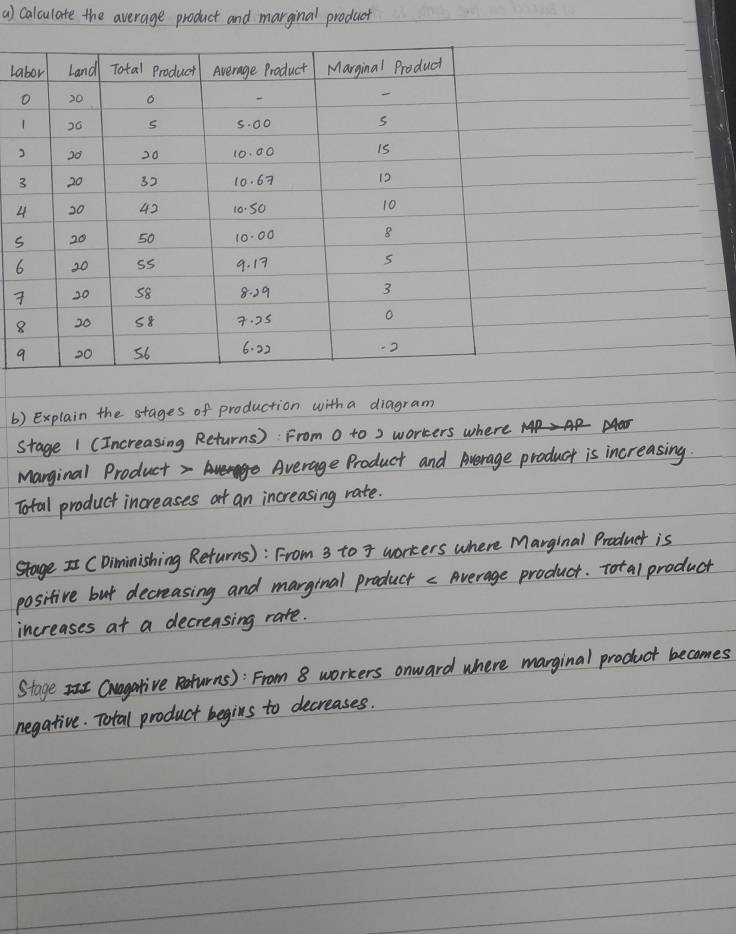 a) Calculate the average product and marginal product
Labor Land Total Product Average Product Marginal Product
0 20 0 - -
1 20 5 5.00 5
2 20 20 10.00 15
3 20 32 10.67 12
4 20 42 10.50 10
5 20 50 10.00 8
6 20 55 9.17 5
7 20 58 8.29 3
8 20 58 7.25 0
9 20 56 6.22 -2
b) Explain the stages of production with a diagram
Stage 1 (Increasing Returns): From 0 to 2 workers where MP > AP
Marginal Product > Average Average Product and Average product is increasing.
Total product increases at an increasing rate.
Stage II (Diminishing Returns): From 3 to 7 workers where Marginal Product is
positive but decreasing and marginal product < Average product. Total product
increases at a decreasing rate.
Stage III (Nagative Returns): From 8 workers onward where marginal product becomes
negative. Total product begins to decreases.